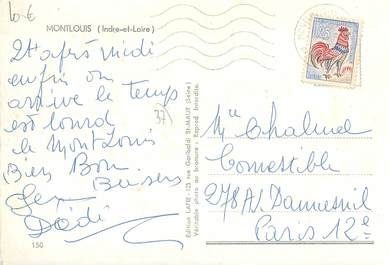 10 €
MONTLOUIS (Indre-et-Loire)
2h après midi
enfin on
arrive le temps
est lourd
de Mont Louis
Bien Bon
Baisers
Dédé
37)
150
Edition LAFIE - 125 rue Garibaldi St-MAUR (Seine)
Véritable photo au bromure - Reprod. Interdite.
Mme Chalmel
Comestible
278 Av. Daumesnil
Paris 12e